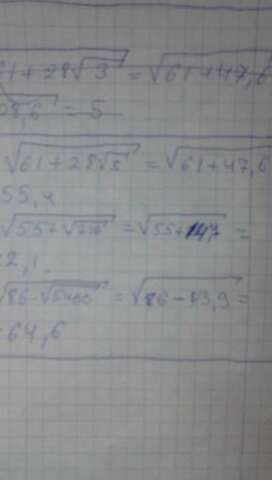 61 + 28√3 = √61 + 47,6
08,6 = 5
√61 + 28√3 = √61 + 47,6
55,4
√55 + √216 = √55 + 147 =
22,1
√86 - √5460 = √86 - 73,9 =
64,6